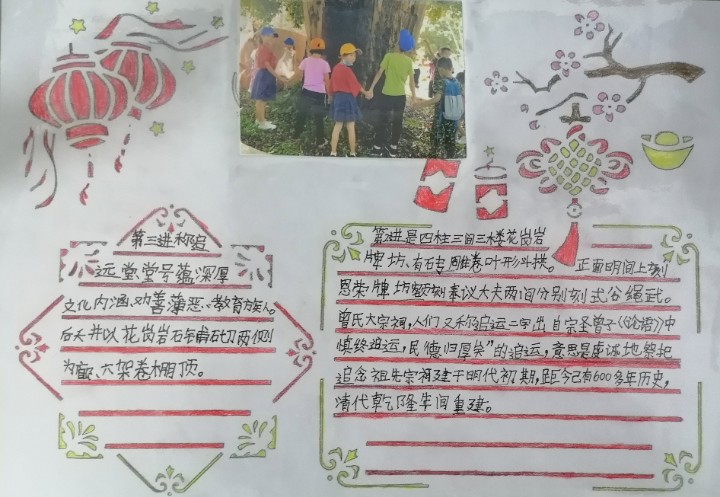 第三进称追
远堂,堂号蕴深厚
文化内涵劝善薄恶、教育族人。
后天井以花岗岩石条 砌两侧
为 、六架卷棚顶。
第 进是四柱三间三楼花岗岩
牌坊、有砖 卷叶形斗拱。 正面明间上刻
恩荣牌坊额刻奉议大夫两间分别刻式谷绳武。
曾氏大宗祠,人们又称追远二字出自宗圣曾子《论语》中
慎终追远,民德归厚矣”的追远,意思是虔诚地祭祀
追念祖先宗祠建于明代初期,距今已有600多年历史,
清代乾隆年间重建。